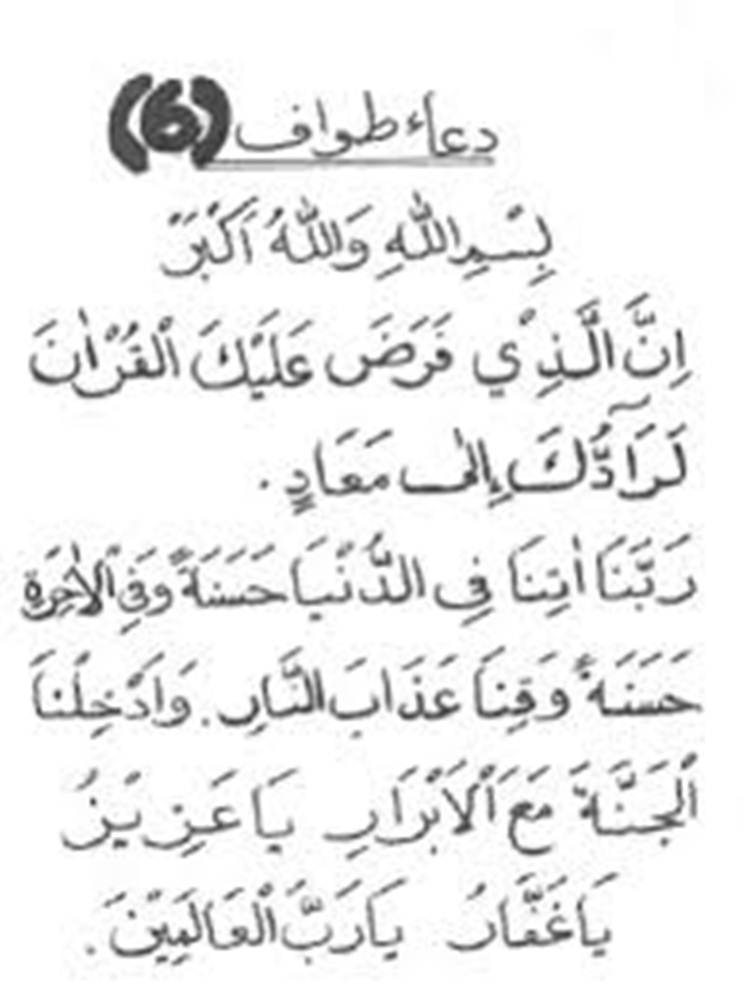 دعاء طواف (6)
بِسْمِ اللّٰهِ وَاللّٰهُ اَكْبَرُ
اِنَّ الَّذِيْ فَرَضَ عَلَيْكَ الْقُرْاٰنَ
لَرَآدُّكَ اِلٰى مَعَادٍ .
رَبَّنَا اٰتِنَا فِى الدُّنْيَا حَسَنَةً وَفِى الْاٰخِرَةِ
حَسَنَةً وَقِنَا عَذَابَ النَّارِ . وَاَدْخِلْنَا
الْجَنَّةَ مَعَ الْاَبْرَارِ يَا عَزِيْزُ
يَاغَفَّارُ يَارَبَّ الْعَالَمِيْنَ .